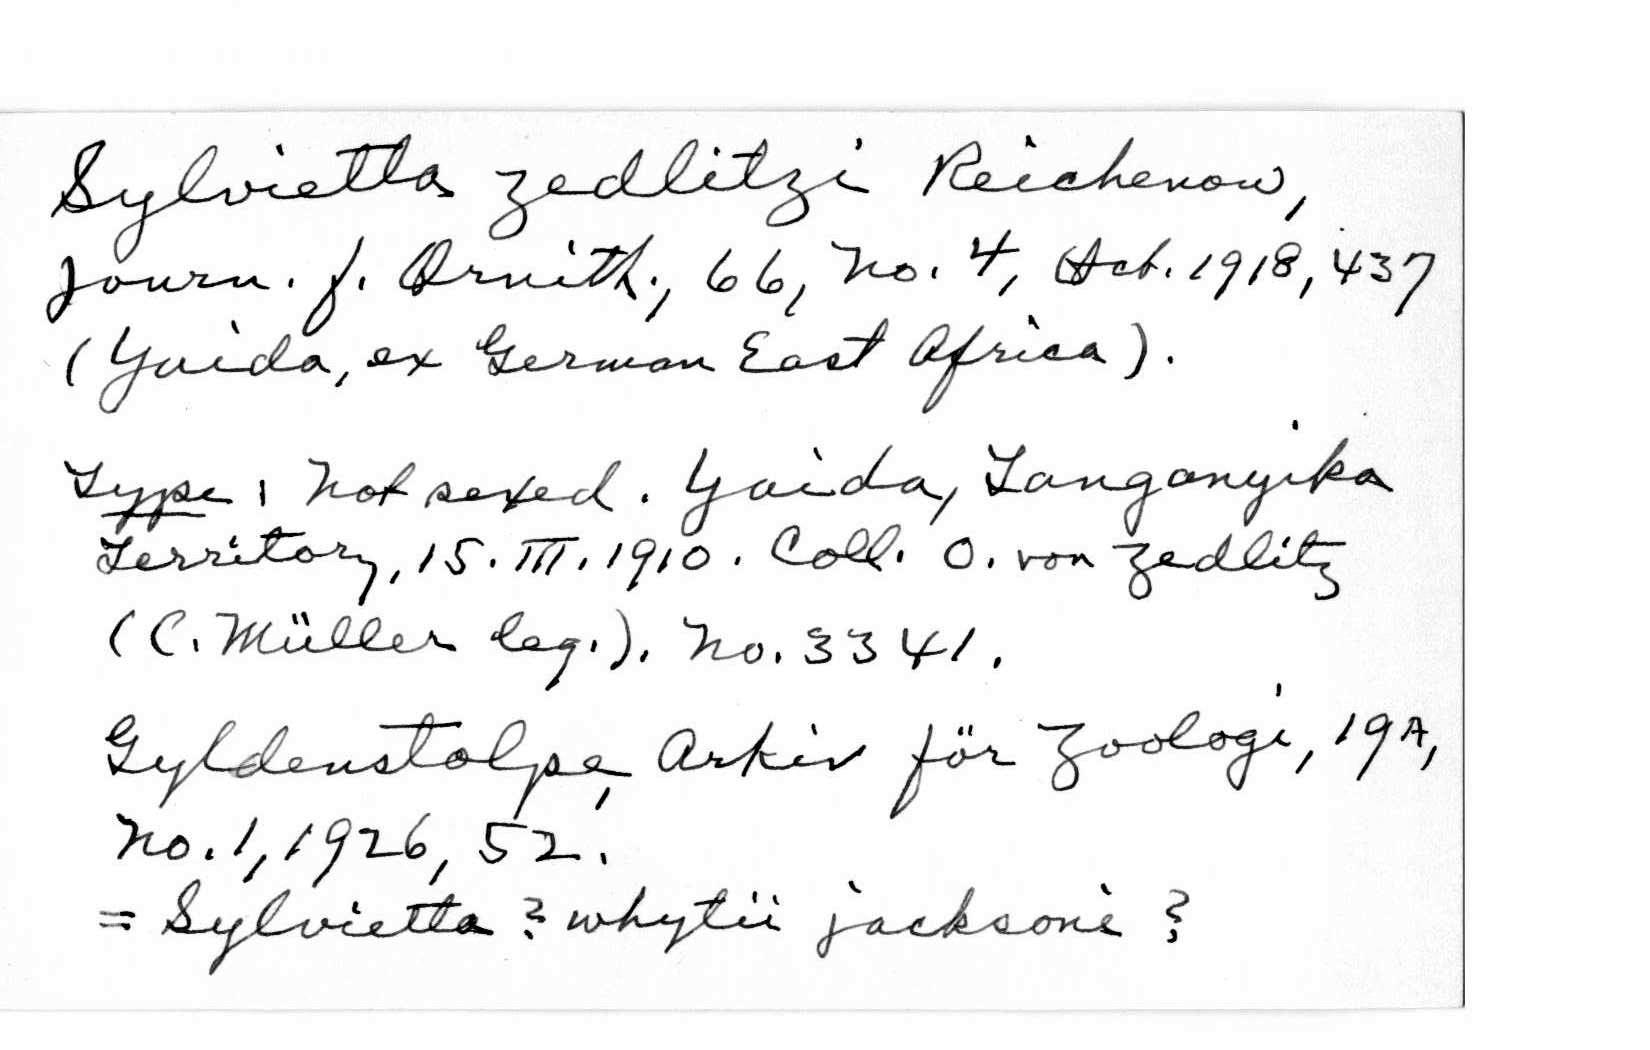 Sylvietta zedlitzi Reichenow,
Journ. f. Ornith., 66, No. 4, Oct. 1918, 437
(Yaida, ex German East Africa).
Type: Not sexed. Yaida, Tanganyika
Territory, 15.III.1910. Coll. O. von Zedlitz
(C. Müller leg.). No. 3341.
Gyldenstolpe, Arkiv för Zoologi, 19A,
No. 1, 1926, 52.
= Sylvietta ? whytii jacksoni ?